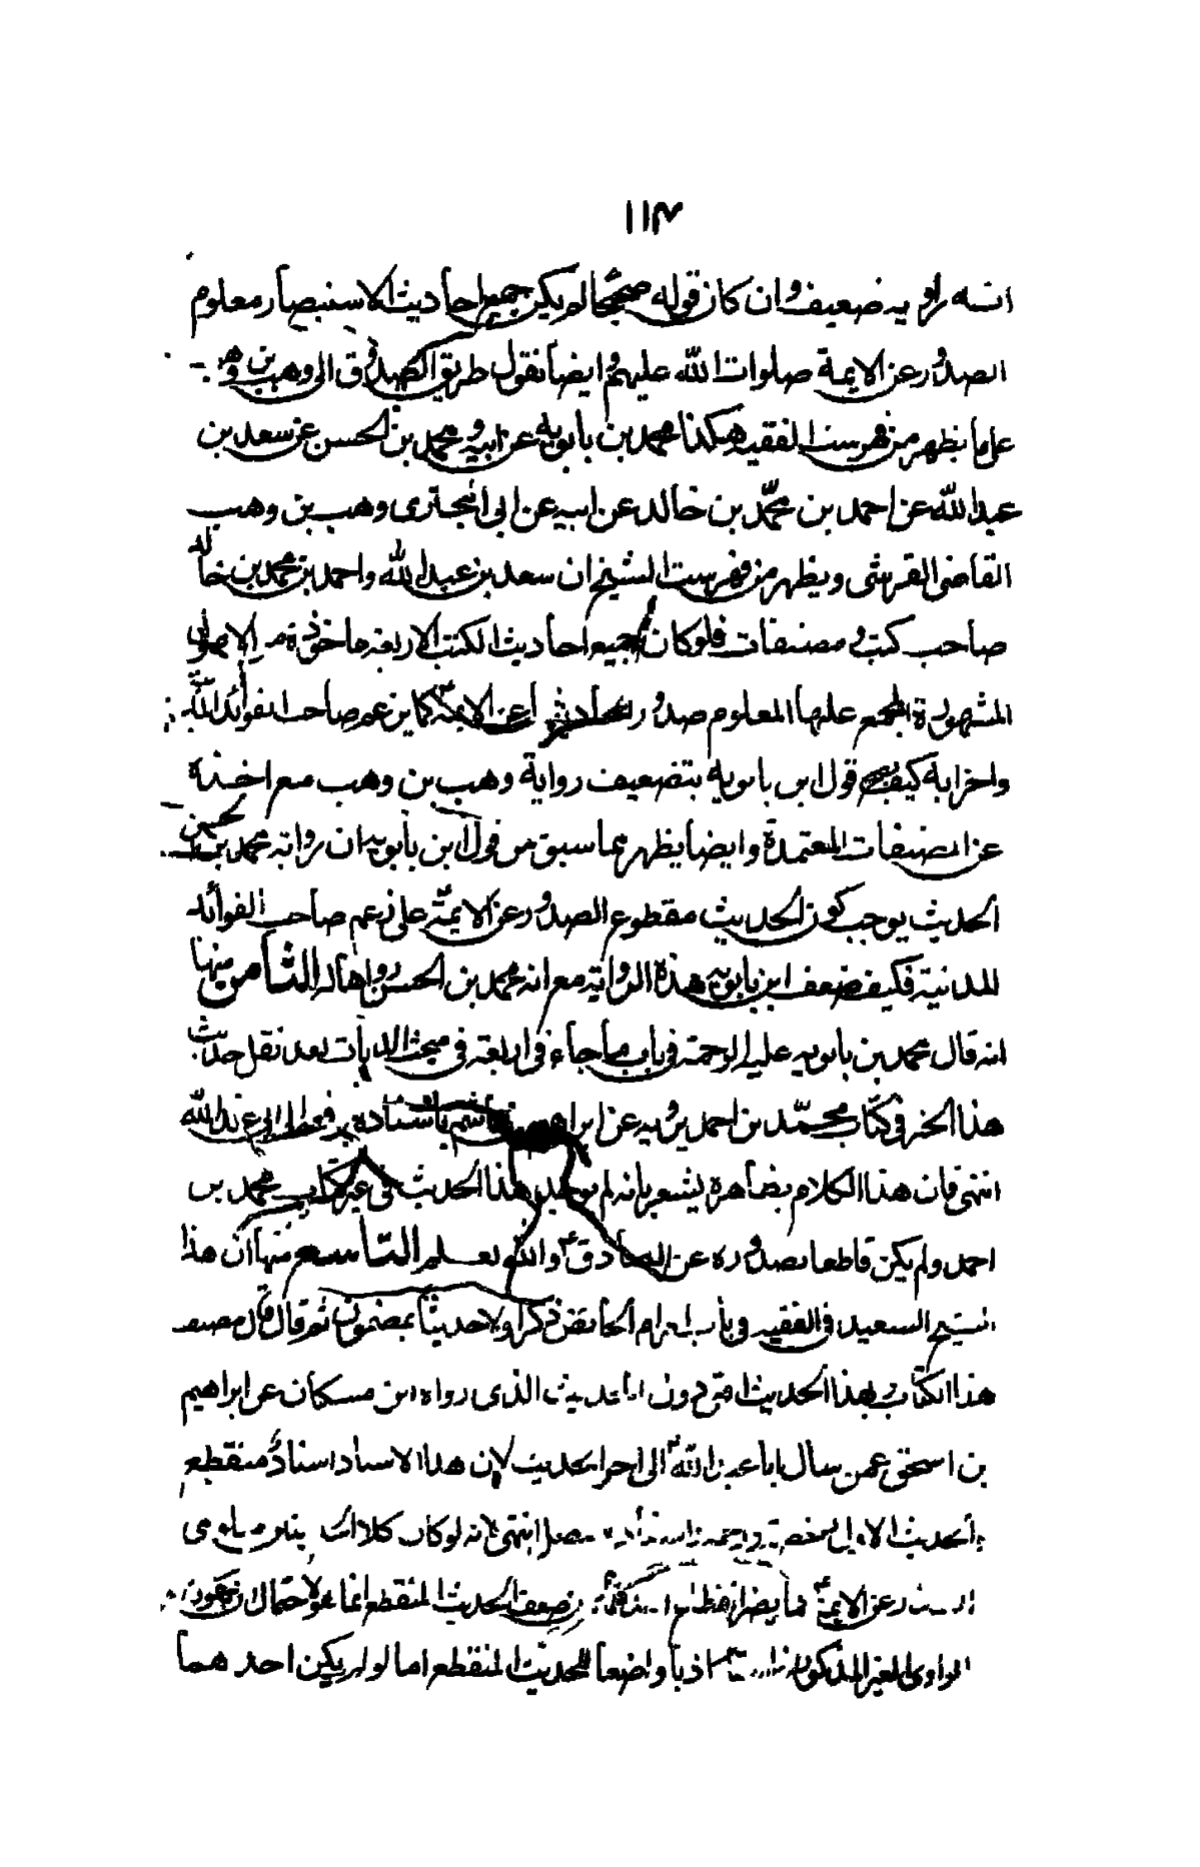 ١١٣
انه راويه ضعيف وان كان قوله صحيحا لم يكن جميع احاديث الاستبصار معلوم
الصدور عن الايمة صلوات الله عليهم وايضا نقول طريق الصدوق الى وهب بن وهب
على ما يظهر من فهرست الفقيه هكذا محمد بن بابويه عن ابيه ومحمد بن الحسن عن سعد بن
عبد الله عن احمد بن محمد بن خالد عن ابيه عن ابى البخترى وهب بن وهب
القاضى القرشى ويظهر من فهرست الشيخ ان سعد بن عبد الله واحمد بن محمد بن خالد
صاحب كتب ومصنفات فلو كان جميع احاديث الكتب الاربعة ماخوذة من الاصول
المشهورة المجمع عليها المعلوم صدور احاديثها عن الايمة كما يزعم صاحب الفوائد
واحزابه كيف يصح قول ابن بابويه بتضعيف رواية وهب بن وهب مع اخذه
عن المصنفات المعتمدة وايضا يظهر مما سبق من قول ابن بابويه ان رواية محمد بن الحسن
الحديث يوجب كون الحديث مقطوع الصدور عن الايمة على زعم صاحب الفوائد
المدنية فكيف ضعف ابن بابويه هذه الرواية مع انه محمد بن الحسن رواها له الثامن منها
انه قال محمد بن بابويه عليه الرحمة فى باب ما جاء فى اربعة فى مبحث الديات بعد نقل حديث
هذا الخبر فى كتاب محمد بن احمد يرويه عن ابراهيم بن هاشم باسناده يرفعه الى ابى عبد الله
انتهى فان هذا الكلام بظاهره يشعر بانه لم يوجد هذا الحديث فى غير كتاب محمد بن
احمد ولم يكن قاطعا بصدوره عن الصادق ع والله يعلم التاسع منها ان هذا
الشيخ السعيد فى الفقيه فى باب احرام الحائض ذكر اولا حديثا بمضمون ثم قال قال مصنف
هذا الكتاب بهذا الحديث افتى دون الحديث الذى رواه ابن مسكان عن ابراهيم
بن اسحق عمن سال ابا عبد الله ع الى اخر الحديث لان هذا الاسناد اسناده منقطع
والحديث الاول رخصة ورحمة واسناده متصل انتهى لانه لو كان كلا
عن الايمة فما يضر انقطاع تضعيف الحديث المنقطع انما هو لاحتمال ان يكون
الراوى الغير المذكور كاذبا واضعا للحديث المنقطع اما لو لم يكن احدهما